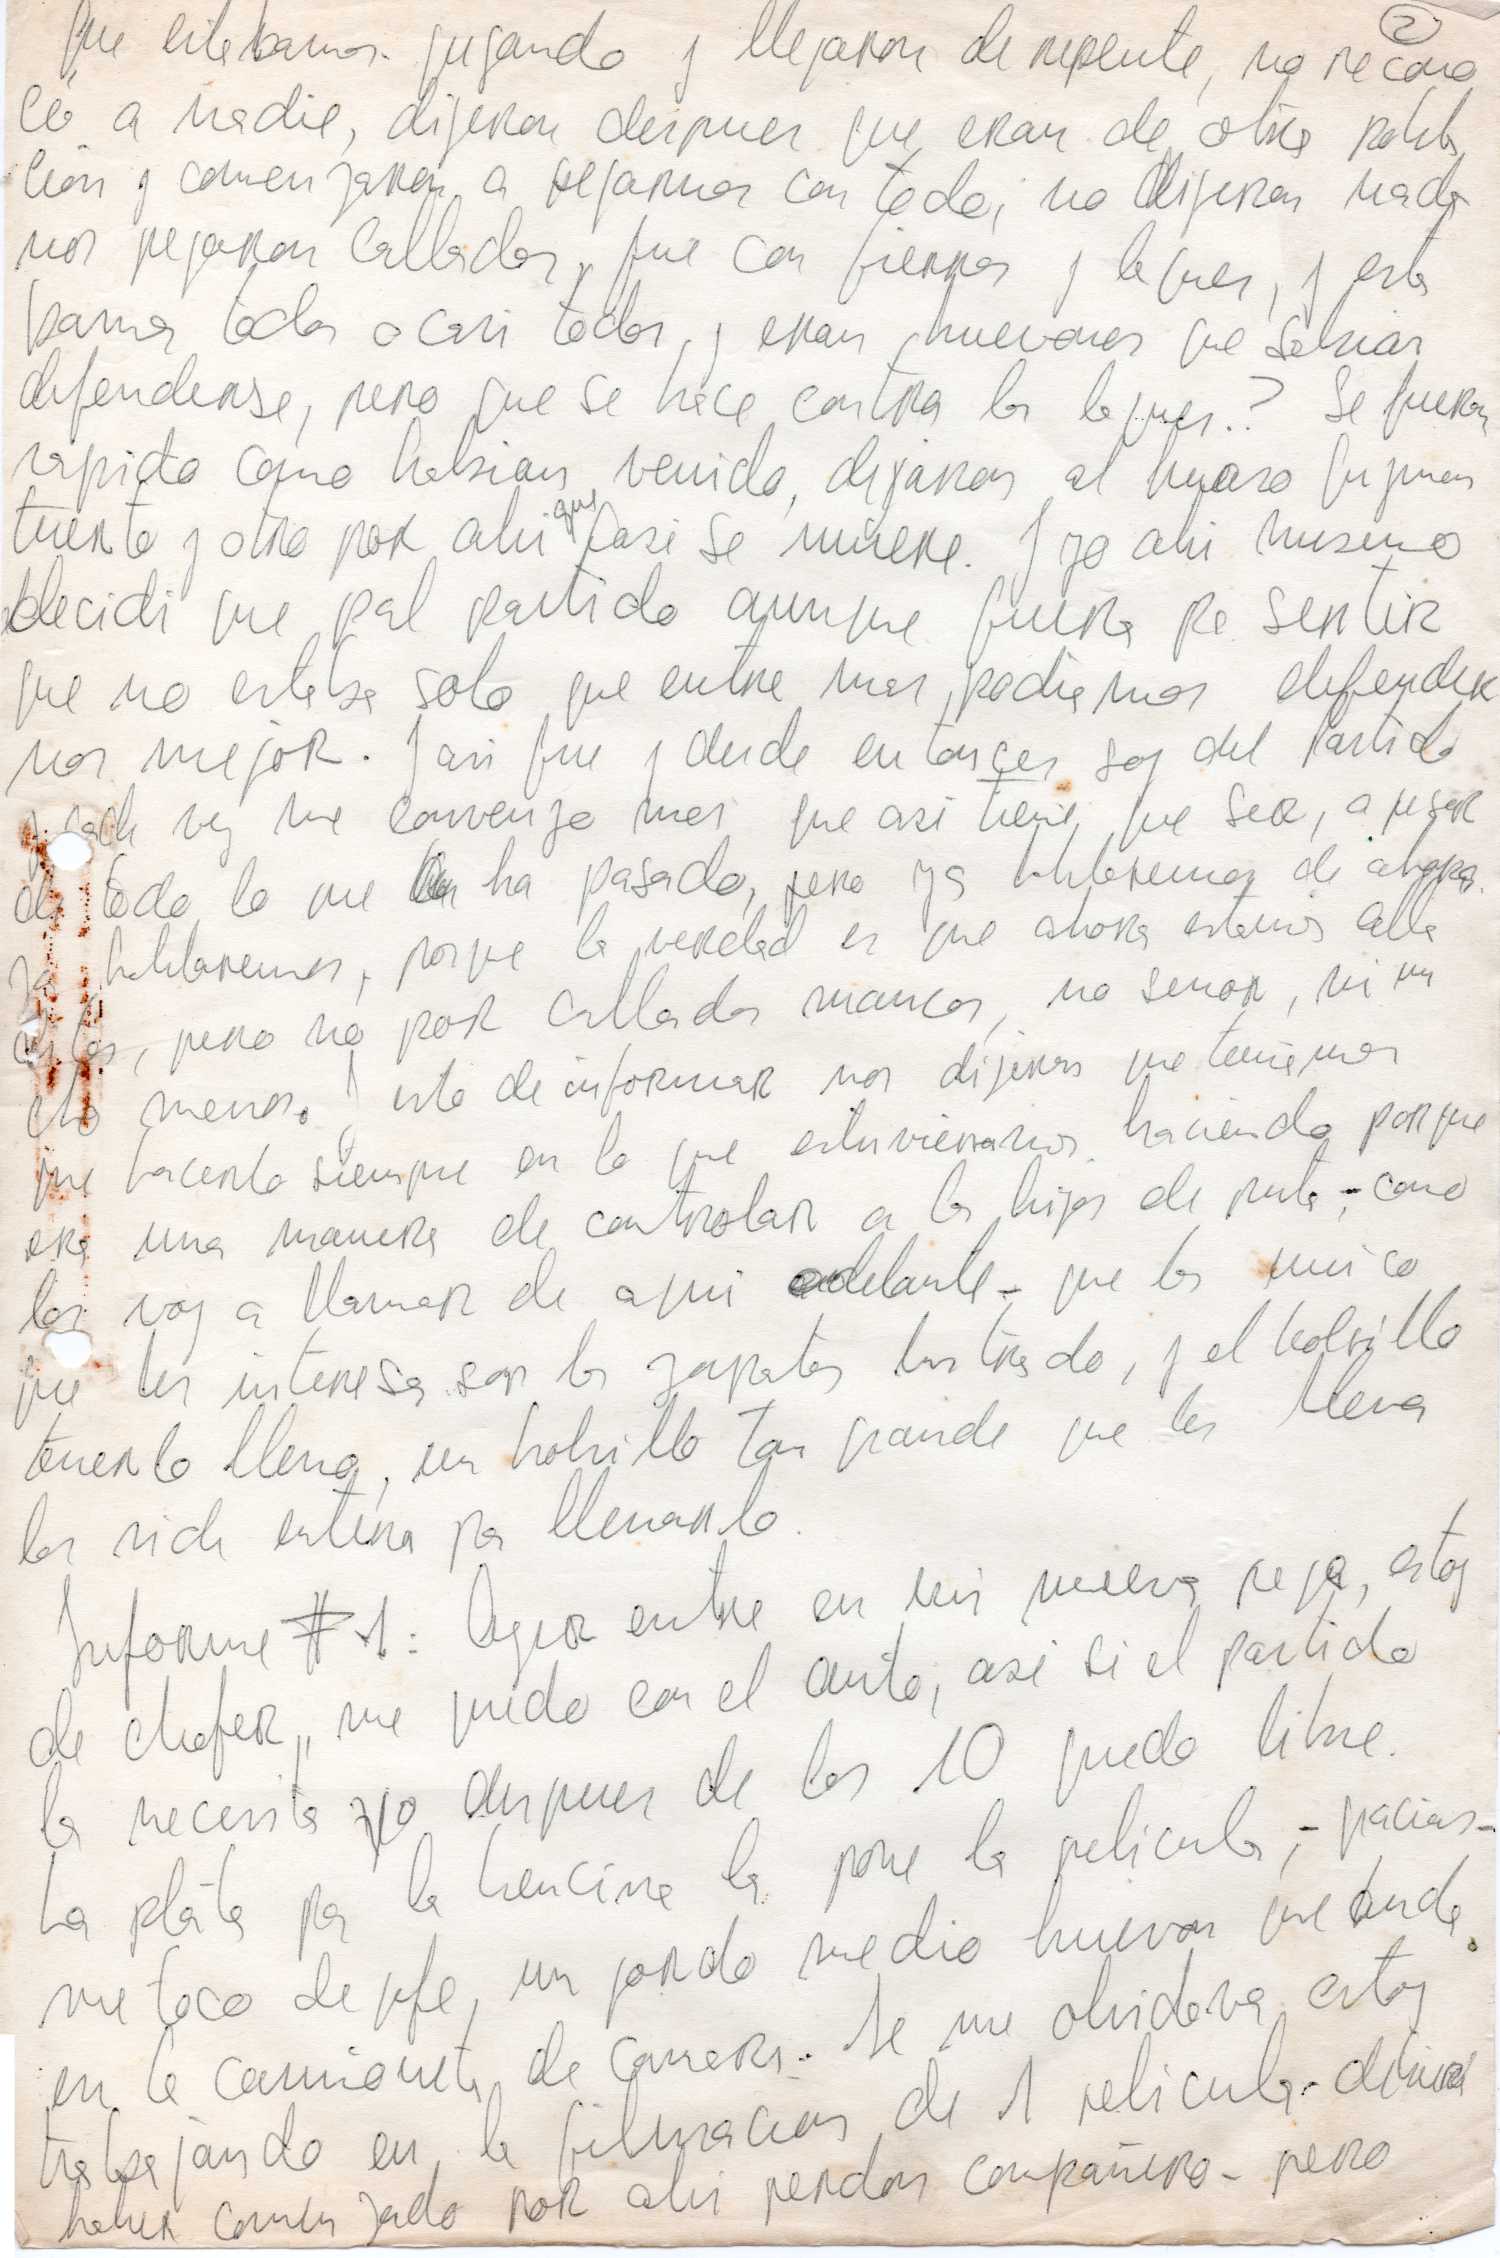 2
que estabamos jugando y llegaron de repente, no recono
ci a nadie, dijeron despues que eran de otra pobla
cion y comenzaron a pegarnos con todo, no dijeron nada
nos pegaron callados, fue con fierros y laques, y esta
bamos todos o casi todos, y eran huevones que sabian
defenderse, pero que se hace contra los laques..? Se fueron
rapido como habian venido, dejaron al huaso Guzman
tuerto y otro por ahi que casi se muere. Y yo ahi mismo
decidi que pal partido aunque fuera pa sentir
que no estaba solo que entre mas podiamos defender
nos mejor. Y asi fue y desde entonces soy del Partido
y cada vez me convenzo mas que asi tiene que ser, a pesar
de todo lo que ha pasado, pero ya hablaremos de ahora.
ya hablaremos, porque la verdad es que ahora estamos calla
ditos, pero no por callados mancos, no senor, ni mu
cho menos. Y esto de informar nos dijeron que teniamos
que hacerlo siempre en lo que estuvieramos haciendo porque
era una manera de controlar a los hijos de puta - como
los voy a llamar de aqui adelante - que lo unico
que les interesa son los zapatos lustrado, y el bolsillo
tenerlo lleno, un bolsillo tan grande que les lleva
la vida entera pa llenarlo.
Informe #1: Ayer entre en mi nueva pega, estoy
de chofer, me quedo con el auto, asi si el partido
lo necesita yo despues de las 10 quedo libre.
La plata pa la bencina la pone la pelicula, - gracias -
me toco de jefe, un gordo medio huevon que anda
en la camioneta de camara - Se me olvidava estoy
trabajando en la filmacion de 1 pelicula - debiera
haber comenzado por ahi perdon compañero - pero